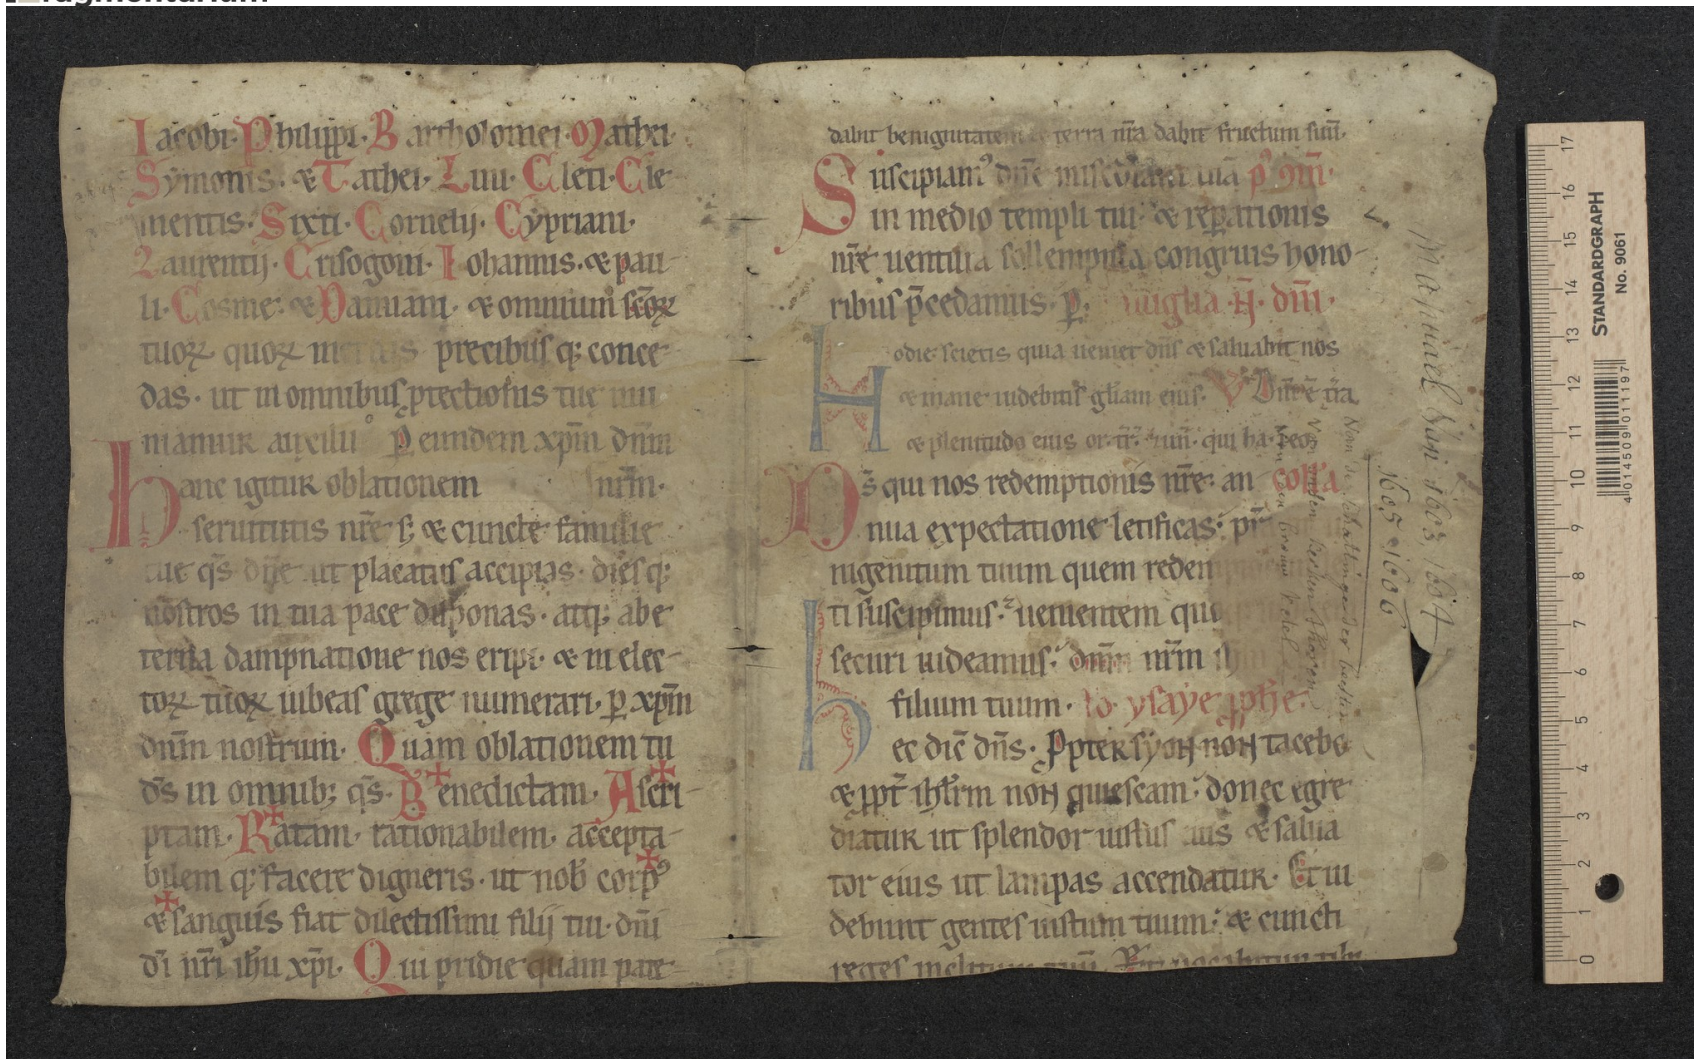 Fragmentarium
Iacobi· Philippi· Bartholomei· Mathei·
Symonis· & Tathei· Lini· Cleti· Cle-
mentis· Sixti· Cornelij· Cypriani·
Laurentij· Crisogoni· Iohannis· & pau-
li· Cosme· & Damiani· & omnium scōꝝ
tuoꝝ quoꝝ meritis precibusq; conce-
das· ut in omnibus ꝓtectiōis tue mu
niamur auxilio Ꝑ eundem xp̄m dn̄m
hanc igitur oblationem nr̄m·
seruitutis nr̄e s; & cuncte familie
tue qs̄ dn̄e ut placatus accipias· diesq;
nostros in tua pace disponas· atq; abe
terna dampnatione nos eripi· & in elec-
toꝝ tuoꝝ iubeas grege numerari· ꝑ xp̄m
dn̄m nostrum· Quam oblationem tu
ds̄ in omnib; qs̄· Benedictam· Ascri-
ptam· Ratam· rationabilem· accepta-
bilem q; facere digneris· ut nob̄ corpꝰ
& sanguis fiat dilectissimi filij tui· dn̄i
dī nr̄i ih̄u xp̄i· Qui pridie quam pate-
dabit benignitatem & terra nr̄a dabit fructum suū·
Suscipiamꝰ dn̄e misc̄diam tuā
in medio templi tui· & reꝑationis
nr̄e uentura sollempnia congruis hono-
ribus p̄cedamus· ꝑ·
Hodie scietis quia ueniet dn̄s & saluabit nos
& mane uidebitis gl̄iam eius· V Dn̄i ē tr̄a
& plenitudo eius or· tr̄· qui ha·
Ds̄ qui nos redemptionis nr̄e· an colł̄a
nua expectatione letificas·
nigenitum tuum quem redem
ti suscipimus· uenientem quoq
securi uideamus· dn̄m nr̄m
filium tuum· ysaye ꝓphē·
hec dic̄ dn̄s· Ppter syon non tacebo
& ꝓpt̄ ih̄rlm non quiescam· donec egre
diatur ut splendor iustus eius & salua
tor eius ut lampas accendatur· Et ui
debunt gentes iustum tuum· & cuncti
reges inclitum tuū
1603 1604
1605 1606
STANDARDGRAPH
No. 9061
4 014509 011197
17
16
15
14
13
12
11
10
9
8
7
6
5
4
3
2
1
0